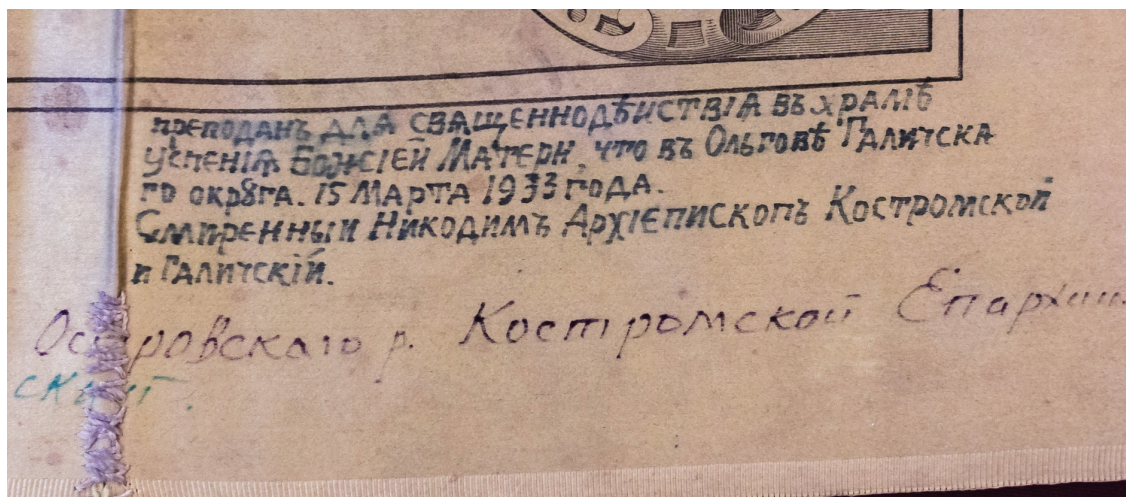 преподанъ для свѧщеннодѣиствіѧ въ храмѣ
успенїѧ Божїей Матери, что въ Ольговѣ Галичска
го окрꙋга. 15 Марта 1933 года.
Смиренныи Никодимъ Архїепископъ Костромской
и Галичскїй.
Островскаго р. Костромской Епархии.
скит.